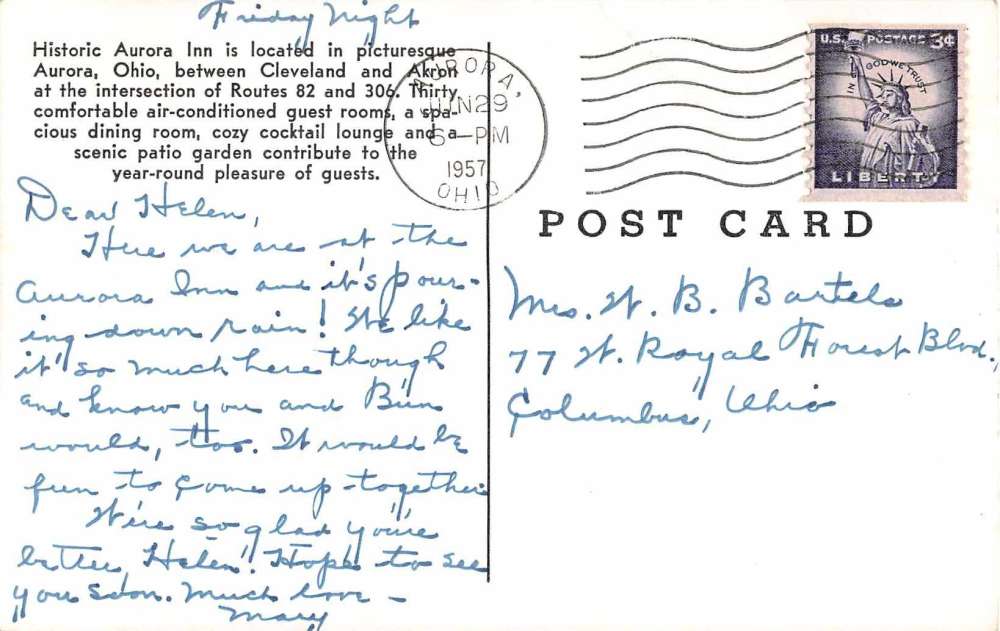 Friday Night
Historic Aurora Inn is located in picturesque
Aurora, Ohio, between Cleveland and Akron
at the intersection of Routes 82 and 306. Thirty
comfortable air-conditioned guest rooms, a spa-
cious dining room, cozy cocktail lounge and a
scenic patio garden contribute to the
year-round pleasure of guests.
AURORA,
JUN 29
6-PM
1957
OHIO
U.S. POSTAGE 3¢
IN GOD WE TRUST
LIBERTY
POST CARD
Dear Helen,
Here we are at the
Aurora Inn and it's pour-
ing down rain! We like
it so much here though
and know you and Bun
would, too. It would be
fun to come up together
We're so glad you're
better, Helen! Hope to see
you soon. Much love -
Mary
Mrs. W. B. Bartels
77 W. Royal Forest Blvd.,
Columbus, Ohio